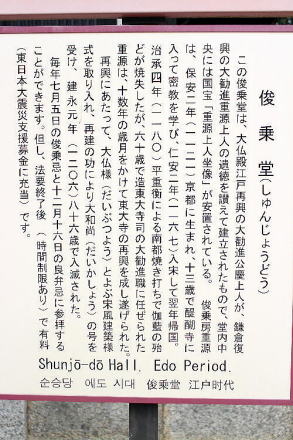 俊乗堂(しゅんじょうどう)
この俊乗堂は、大仏殿江戸再興の大勧進公慶上人が、鎌倉復
興の大勧進重源上人の遺徳を讃えて建立されたもので、堂内中
央には国宝「重源上人坐像」が安置されている。 俊乗房重源
は、保安二年(一一二一)京都に生まれ、十三歳で醍醐寺に
入って密教を学び、仁安二年(一一六七)入宋して翌年帰国。
治承四年(一一八〇)平重衡による南都焼き打ちで伽藍の殆
どが焼失したが、六十歳で造東大寺司の大勧進職に任ぜられた
重源は、十数年の歳月をかけて東大寺の再興を成し遂げられた。
再興にあたって、大仏様(だいぶつよう)とよぶ宋風建築様
式を取り入れ、再建の功により大和尚(だいかしょう)の号を
受け、建永元年(一二〇六)八十六歳で入滅された。
毎年七月五日の俊乗忌と十二月十六日の良弁忌に参拝する
ことができます。但し、法要終了後(時間制限あり)で有料
(東日本大震災支援募金に充当)です。
Shunjō-dō Hall, Edo Period.
순승당 에도 시대 俊乗堂 江户时代